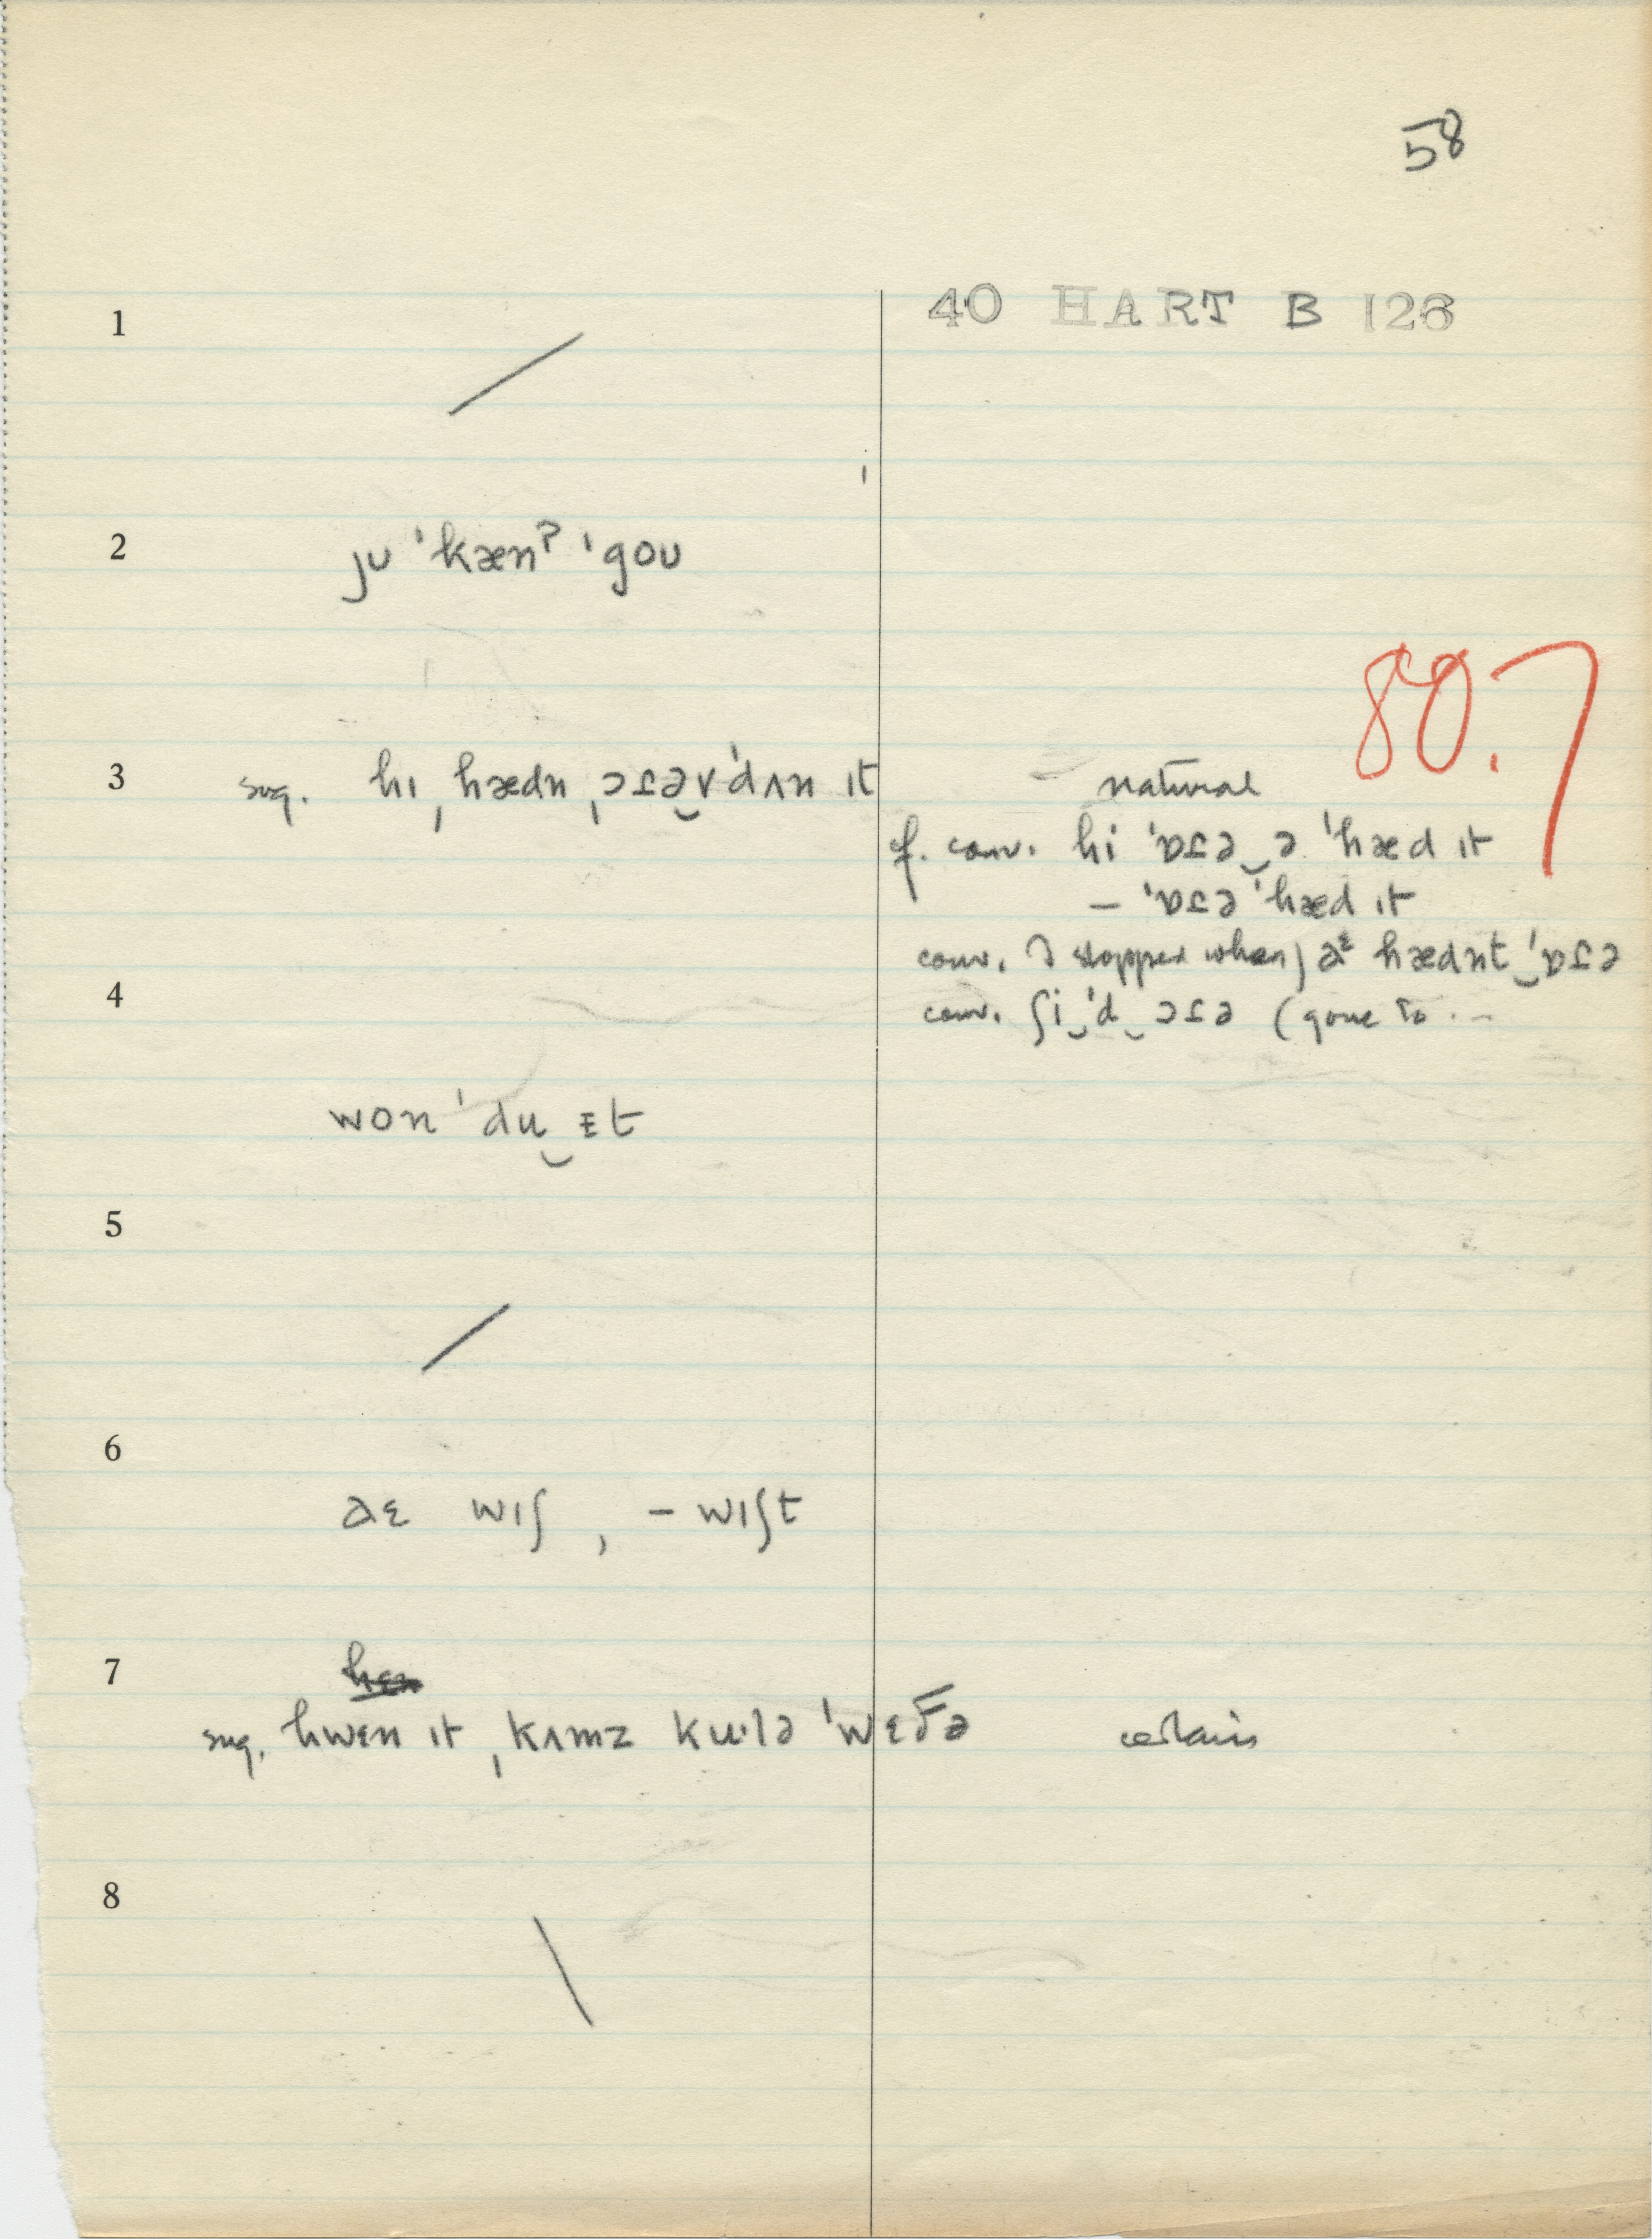 58
40 HART B 126
1
2
ju ˈkæn? ˈgoʊ
80.7
3 sug. hɪ ˌhædn ˌɔɾə‿vˈdʌn ɪt natural
cf. conv. hi ˈɒɾə‿ə ˈhæd ɪt
– ˈɒɾə ˈhæd ɪt
conv. I stopped when) aᵋ hædnt‿ˈɒɾə
4
conv. ʃi‿ˈd‿ɔɾə (gone to ...
won ˈdu‿ᵻt
5
6
aɛ wɪʃ, – wɪʃt
7
sug. hwɛn ɪt ˌkʌmz kuˑlə ˈwɛðə certain
8